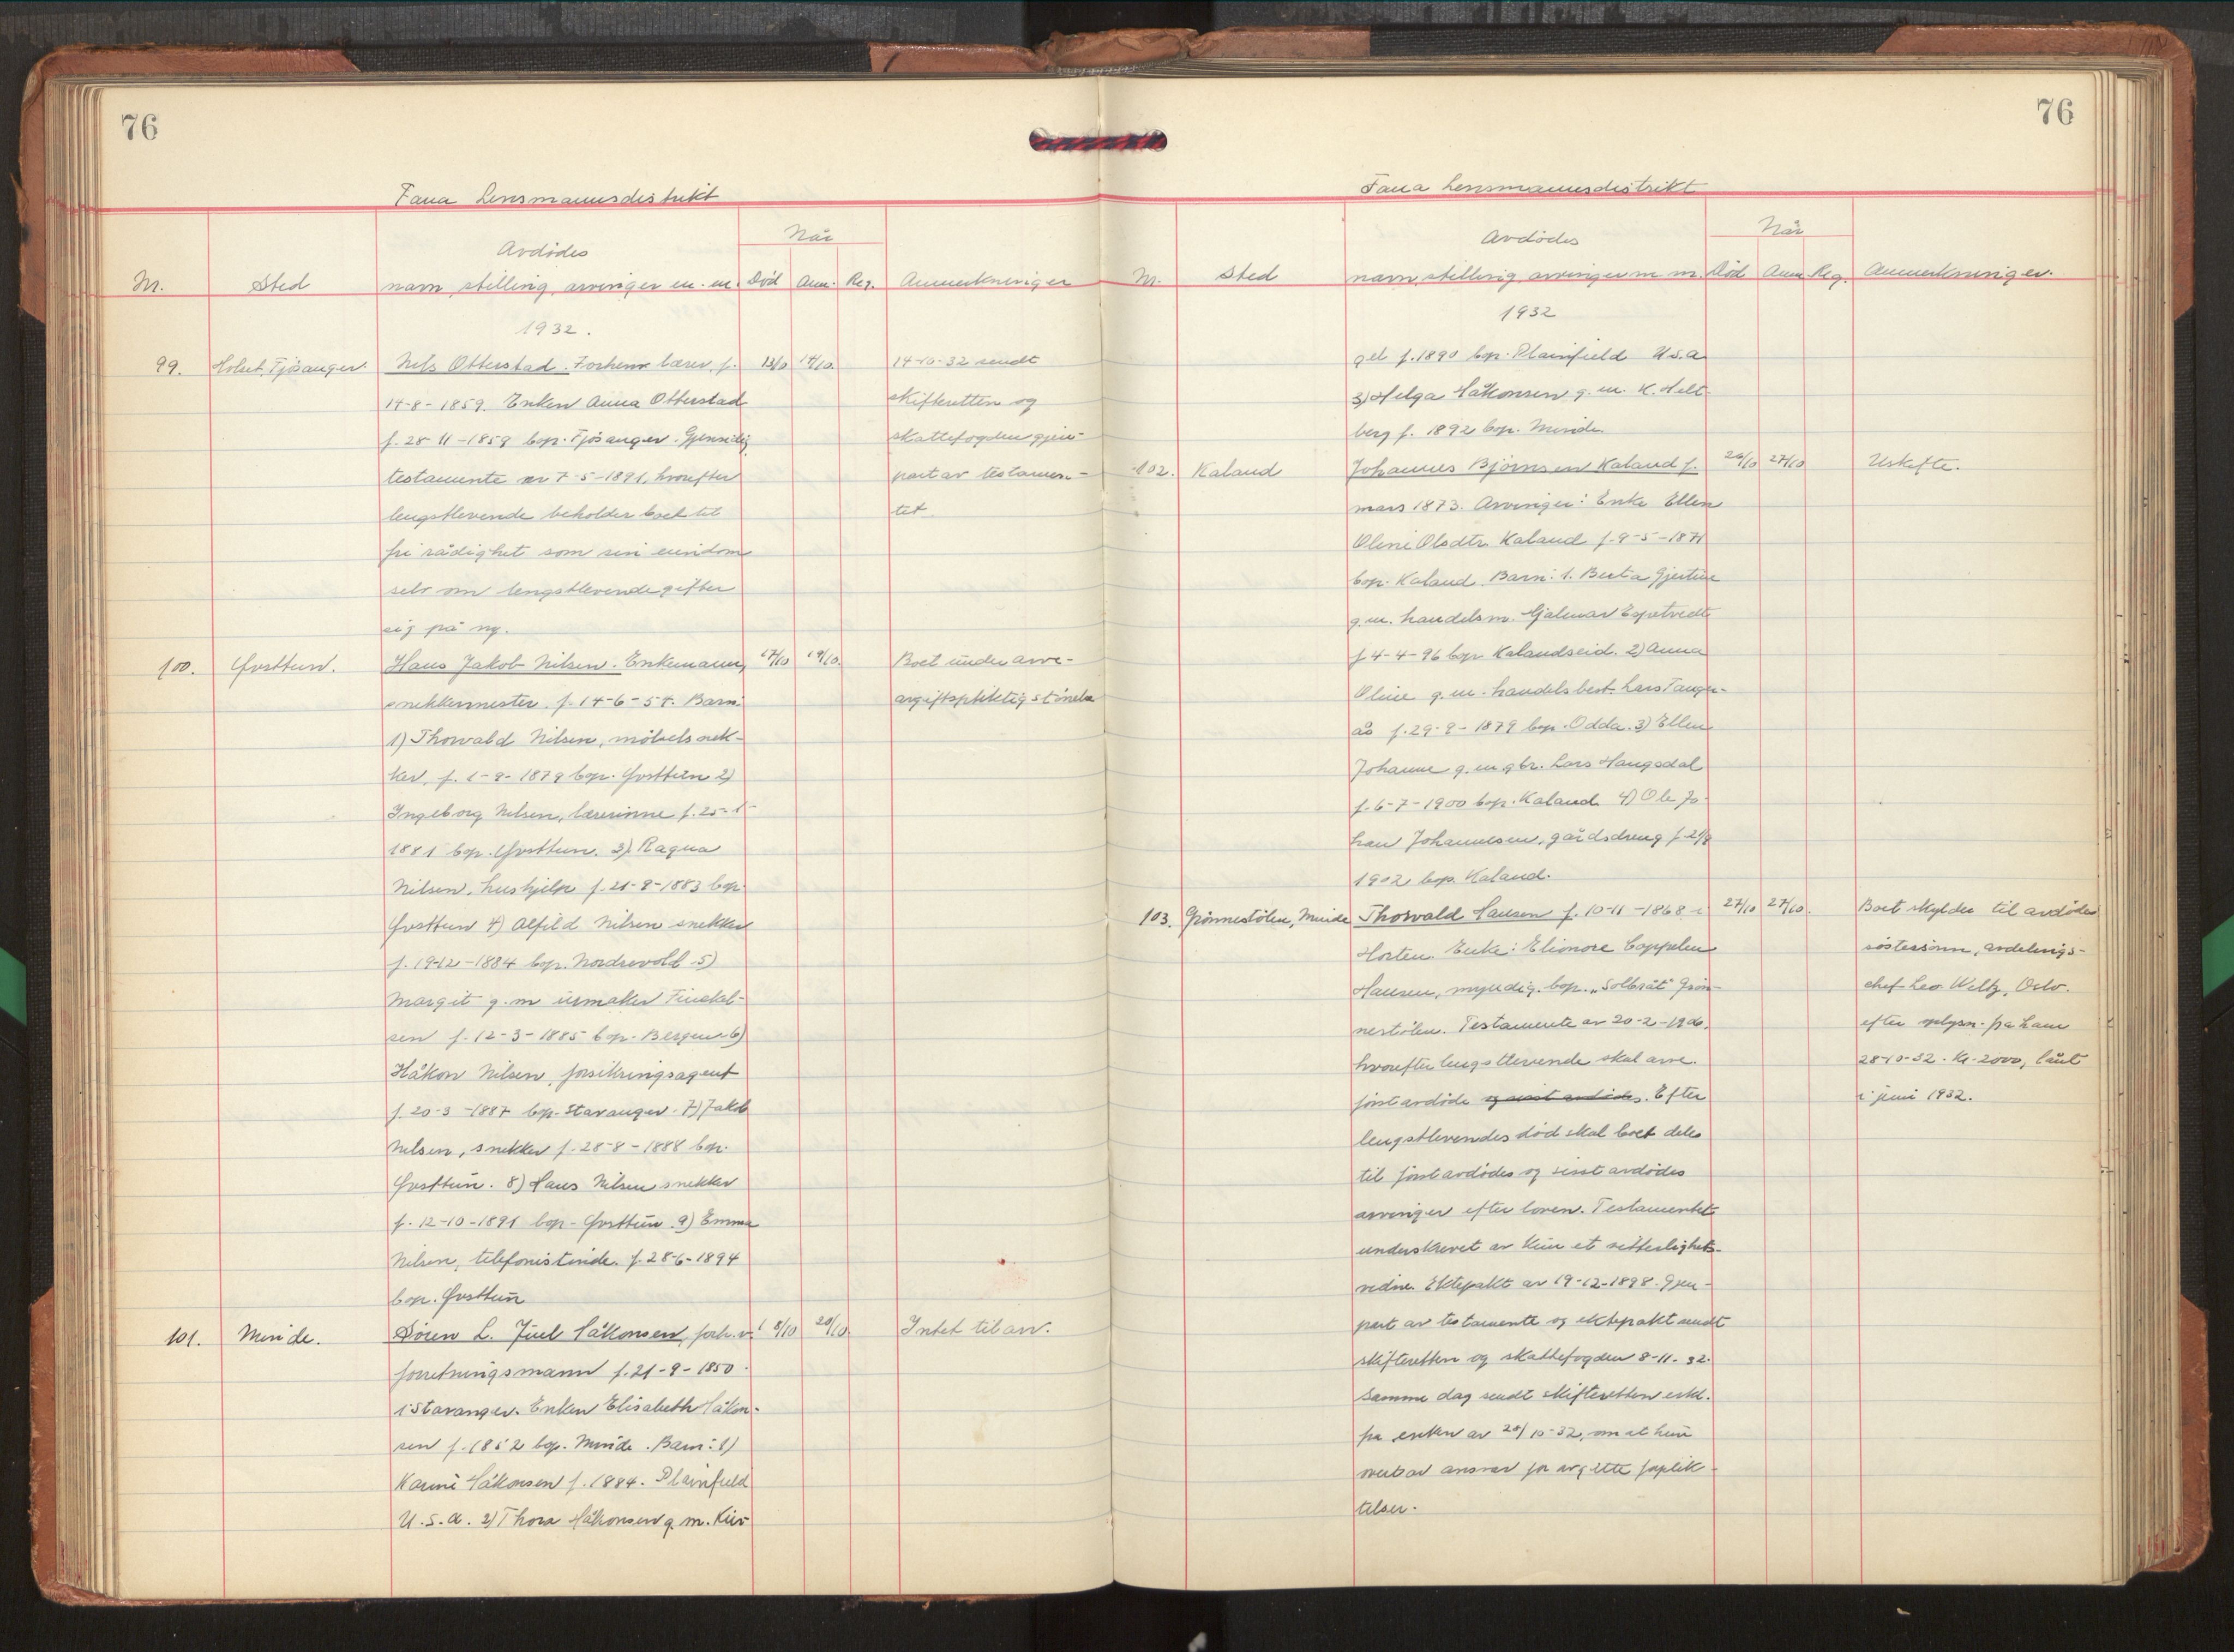 76
Fana Lensmannsdistrikt
Nr.
Sted
Avdödes
navn, stilling, arvinger m. m.
Når
Död
Anm.
Reg.
Anmerkninger
1932.
99.
Fjösanger.
Nils Otterstad. Forhenv. lærer, f.
13/10
14/10.
14-8-1859. Enken Anna Otterstad
f. 28-11-1859 bop. Fjösanger. Gjensidig
testamente av 7-5-1891, hvorefter
lengstlevende beholder boet til
fri rådighet som sin eiendom
selv om lengstlevende gifter
sig på ny.
14-10-32 sendt
skifteretten og
skattefogden gjen-
part av testamen-
tet
100.
Hans Jakob Nilsen. Enkemann,
17/10
19/10.
snekkermester, f. 14-6-54. Barn:
1) Thorvald Nilsen, möbelsnek-
ker, f. 1-8-1879 bop. 2)
Ingeborg Nilsen, lærerinne f. 25-1-
1881 bop. 3) Ragna
Nilsen, hushjelp f. 21-8-1883 bop.
4) Alfild Nilsen snekker
f. 19-12-1884 bop. 5)
Margit g. m. urmaker
sen f. 12-3-1885 bop. Bergen 6)
Håkon Nilsen, forsikringsagent
f. 20-3-1887 bop. Stavanger. 7) Jakob
Nilsen, snekker f. 28-8-1888 bop.
8) Hans Nilsen snekker
f. 12-10-1891 bop. 9) Emma
Nilsen, telefonistinde. f. 28-6-1894
bop.
Boet under arve-
avgiftspliktig störrelse
101.
Minde.
Sören L. Juel Håkonsen, forh. v.
18/10
20/10.
Intet til arv.
forretningsmann f. 21-9-1850
i Stavanger. Enken Elisabeth Håkon-
sen f. 1852 bop. Minde. Barn: 1)
Håkonsen f. 1884. Plainfield
U. S. A. 2) Thora Håkonsen g. m.
76
Fana Lensmannsdistrikt
Nr.
Sted
Avdödes
navn, stilling, arvinger m. m.
Når
Död
Anm.
Reg.
Anmerkninger.
1932
f. 1890 bop. Plainfield U.S.A
3) Helga Håkonsen g. m. K. Helt-
berg f. 1892 bop. Minde.
102.
Kaland
Johannes Björnsen Kaland f.
26/10
27/10
Uskifte.
mars 1873. Arvinger: Enke Ellen
Oline Olsdtr. Kaland f. 9-5-1871
bop. Kaland. Barn: 1. Berta Gjertine
g. m. handelsm. Hjalmar Espetvedt
f 4-4-96 bop. Kalandseid. 2) Anna
Oline g. m. handelsbest. Lars Tanger-
ås f. 29-9-1879 bop. Odda. 3) Ellen
Johanne g. m. gbr. Lars Haugsdal
f. 6-7-1900 bop. Kaland. 4) Ole Jo-
han Johannesen, gårdsdreng f. 21/9
1902 bop. Kaland.
103.
Grönnestölen, Minde
Thorvald Hansen f. 10-11-1868 i
27/10
27/10.
Horten. Enke: Elionore Coppelen
Hansen, myndig. bop. "Solbråt" Grön-
nestölen. Testamente av 20-2-1906.
hvorefter lengstlevende skal arve
först avdöde og sist avdödes. Efter
lengstlevendes död skal boet deles
til först avdödes og sist avdödes
arvinger efter loven. Testamentet
underskrevet av kun et vitterlighets-
vidne. Ektepakt av 19-12-1898. Gjen-
part av testamente og ektepakt sendt
skifteretten og skattefogden 8-11-32.
Samme dag sendt skifteretten erkl.
fra enken av 28/10-32, om at hun
overtar ansvar for avgötte forplik-
telser.
Boet skylder til avdödes
söstersönn, avdelings-
chef Leo Weltz, Oslo.
efter oplysn. fra ham
28-10-32. Kr. 2000, lånt
i juni 1932.